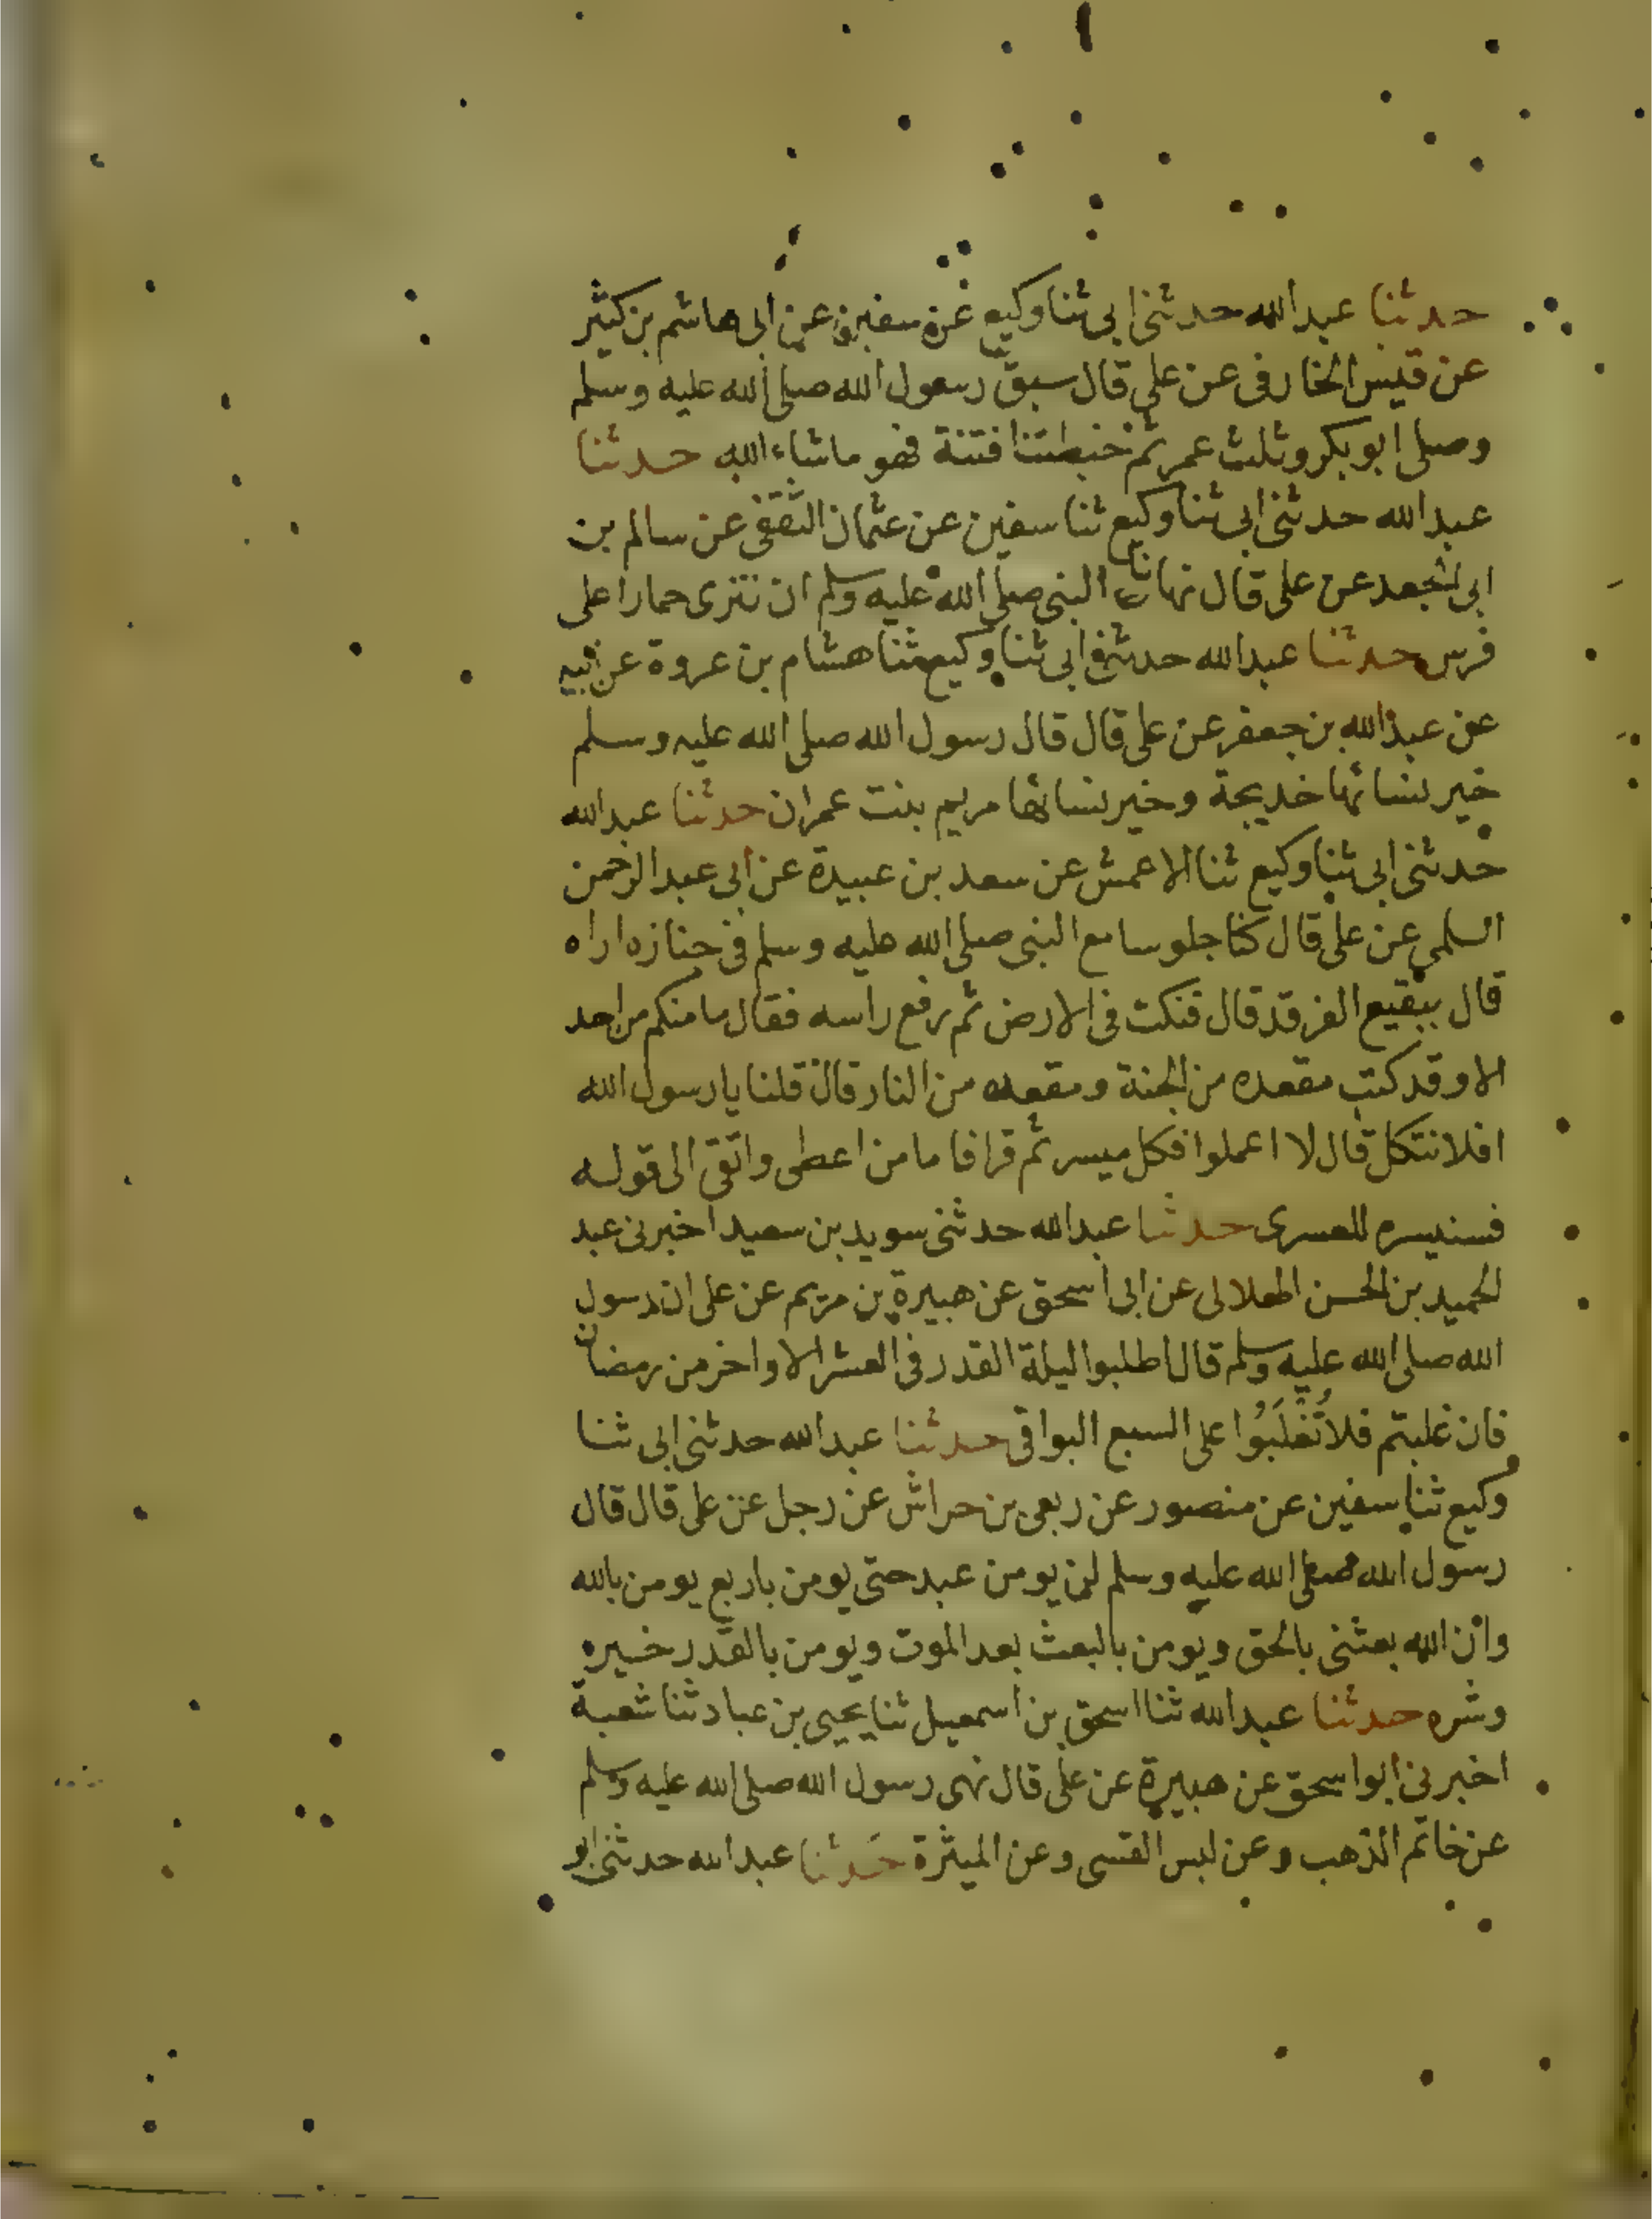 حدثنا عبدالله حدثنى ابى ثنا وكيع عن سفين عن ابى هاشم بن كثير
عن قيس الخارفى عن على قال سبق رسول الله صلى الله عليه وسلم
وصلى ابو بكر وثلث عمر ثم خبطتنا فتنة فهو ماشاء الله حدثنا
عبدالله حدثنى ابى ثنا وكيع ثنا سفين عن عثمان الثقفى عن سالم بن
ابى الجعد عن على قال نهانا النبى صلى الله عليه وسلم ان ننزى حمارا على
فرس حدثنا عبدالله حدثنى ابى ثنا وكيع ثنا هشام بن عروة عن ابيه
عن عبدالله بن جعفر عن على قال قال رسول الله صلى الله عليه وسلم
خير نسائها خديجة وخير نسائها مريم بنت عمران حدثنا عبدالله
حدثنى ابى ثنا وكيع ثنا الاعمش عن سعد بن عبيدة عن ابى عبد الرحمن
السلمى عن على قال كنا جلوسا مع النبى صلى الله عليه وسلم فى جنازه اراه
قال ببقيع الغرقد قال فنكت فى الارض ثم رفع راسه فقال ما منكم من احد
الا وقد كتب مقعده من الجنة ومقعده من النار قال قلنا يا رسول الله
افلا نتكل قال لا اعملوا فكل ميسر ثم قرا فاما من اعطى واتقى الى قوله
فسنيسره للعسرى حدثنا عبدالله حدثنى سويد بن سعيد اخبرنى عبد
الحميد بن الحسن الهلالى عن ابى اسحق عن هبيرة بن مريم عن على ان رسول
الله صلى الله عليه وسلم قال اطلبوا ليلة القدر فى العشر الاواخر من رمضان
فان غلبتم فلا تُغْلَبُوا على السبع البواقى حدثنا عبدالله حدثنى ابى ثنا
وكيع ثنا سفين عن منصور عن ربعى بن حراش عن رجل عن على قال قال
رسول الله صلى الله عليه وسلم لن يومن عبد حتى يومن باربع يومن بالله
وان الله بعثنى بالحق ويومن بالبعث بعد الموت ويومن بالقدر خيره
وشره حدثنا عبدالله ثنا اسحق بن اسمعيل ثنا يحيى بن عباد ثنا شعبة
اخبرنى ابو اسحق عن هبيرة عن على قال نهى رسول الله صلى الله عليه وسلم
عن خاتم الذهب وعن لبس القسى وعن الميثرة حدثنا عبدالله حدثنى ابو